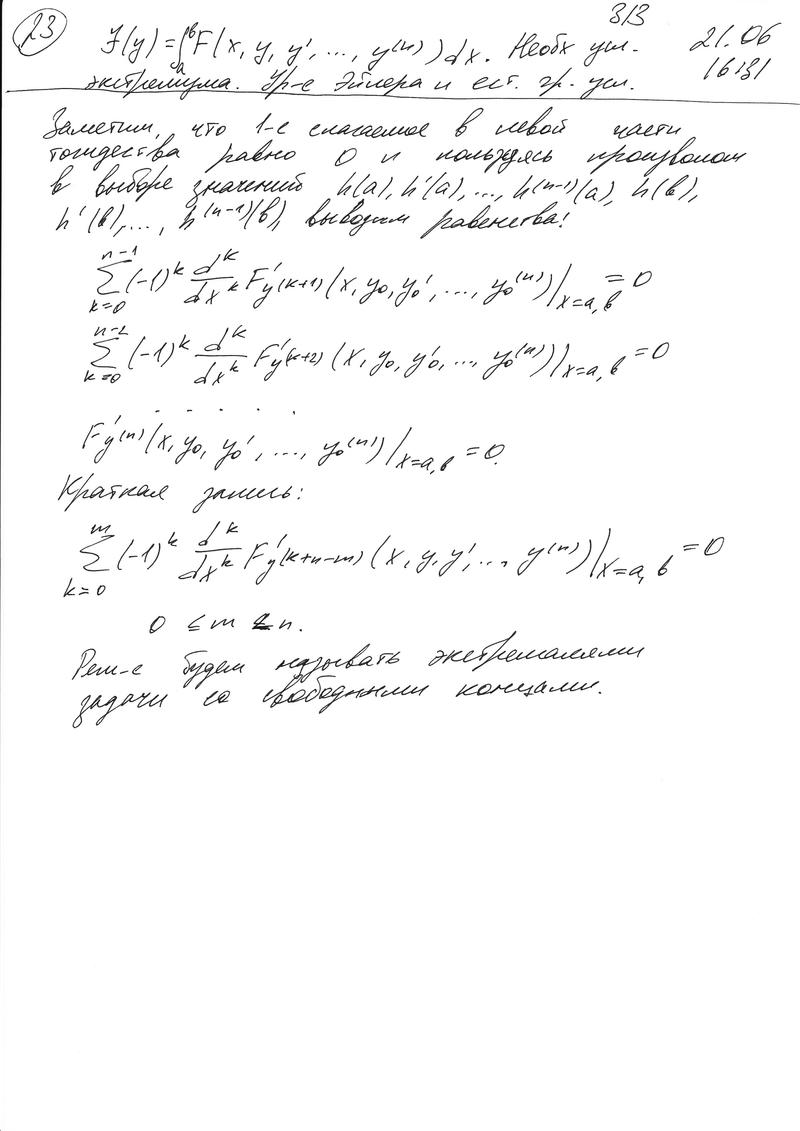 23
3/3
21.06
16:31
J(y) = ∫ₐᵇ F(x, y, y', ..., y⁽ⁿ⁾) dx. Необх усл.
экстремума. Ур-е Эйлера и ест. гр. усл.
Заметим, что 1-е слагаемое в левой части
тождества равно 0 и пользуясь произволом
в выборе значений h(a), h'(a), ..., h⁽ⁿ⁻¹⁾(a), h(b),
h'(b), ..., h⁽ⁿ⁻¹⁾(b), выводим равенства:
∑_{k=0}^{n-1} (-1)^k d^k/dx^k F'_{y^{(k+1)}} (x, y₀, y₀', ..., y₀⁽ⁿ⁾)|_{x=a, b} = 0
∑_{k=0}^{n-2} (-1)^k d^k/dx^k F'_{y^{(k+2)}} (x, y₀, y₀', ..., y₀⁽ⁿ⁾)|_{x=a, b} = 0
. . . . .
F'_{y^{(n)}} (x, y₀, y₀', ..., y₀⁽ⁿ⁾)|_{x=a, b} = 0.
Краткая запись:
∑_{k=0}^{m} (-1)^k d^k/dx^k F'_{y^{(k+n-m)}} (x, y, y', ..., y⁽ⁿ⁾)|_{x=a, b} = 0
0 ≤ m < n.
Реш-е будем называть экстремалями
задачи со свободными концами.